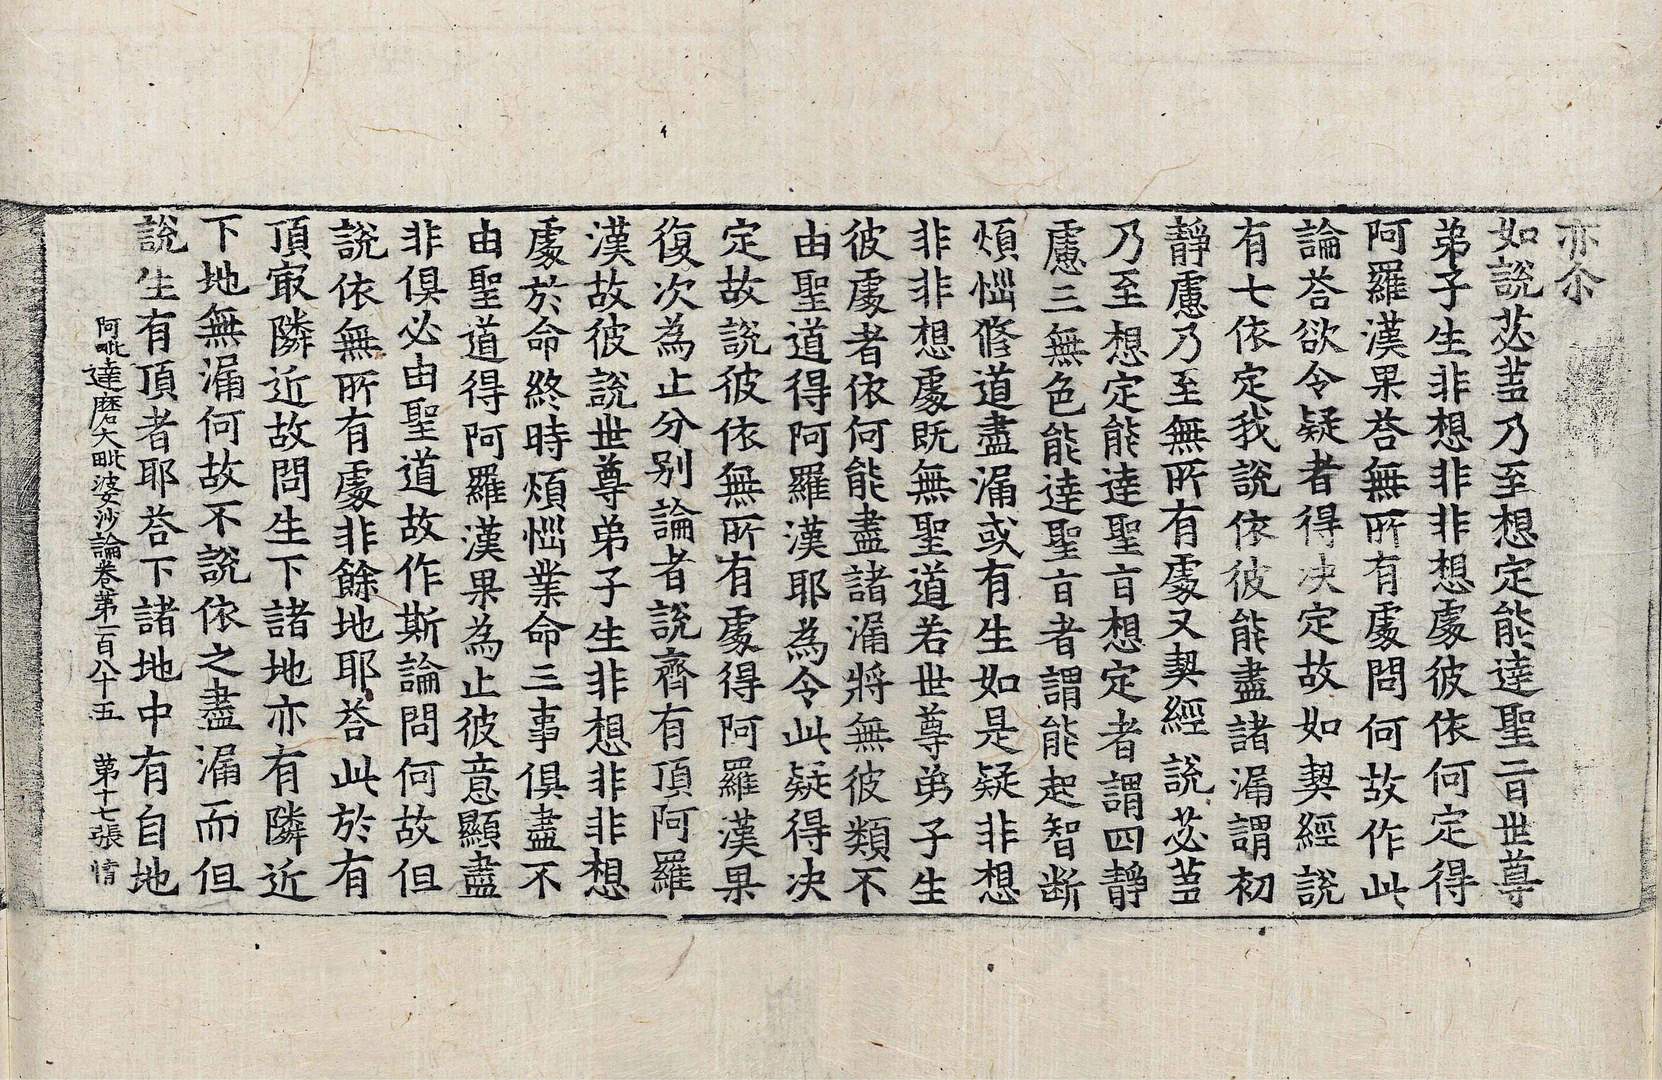 亦尒
如說苾蒭乃至想定能達聖言世尊
弟子生非想非非想處彼依何定得
阿羅漢果荅無所有處問何故作此
論荅欲令疑者得决定故如契經說
有七依定我說依彼能盡諸漏謂初
靜慮乃至無所有處又契經說苾蒭
乃至想定能達聖言想定者謂四靜
慮三無色能達聖言者謂能起智斷
煩惱修道盡漏或有生如是疑非想
非非想處既無聖道若世尊弟子生
彼處者依何能盡諸漏將無彼類不
由聖道得阿羅漢耶為令此疑得决
定故說彼依無所有處得阿羅漢果
復次為止分別論者說齊有頂阿羅
漢故彼說世尊弟子生非想非非想
處於命終時煩惱業命三事俱盡不
由聖道得阿羅漢果為止彼意顯盡
非俱必由聖道故作斯論問何故但
說依無所有處非餘地耶荅此於有
頂㝡隣近故問生下諸地亦有隣近
下地無漏何故不說依之盡漏而但
說生有頂者耶荅下諸地中有自地
阿毗達磨大毗婆沙論卷第一百八十五　第十七張　情